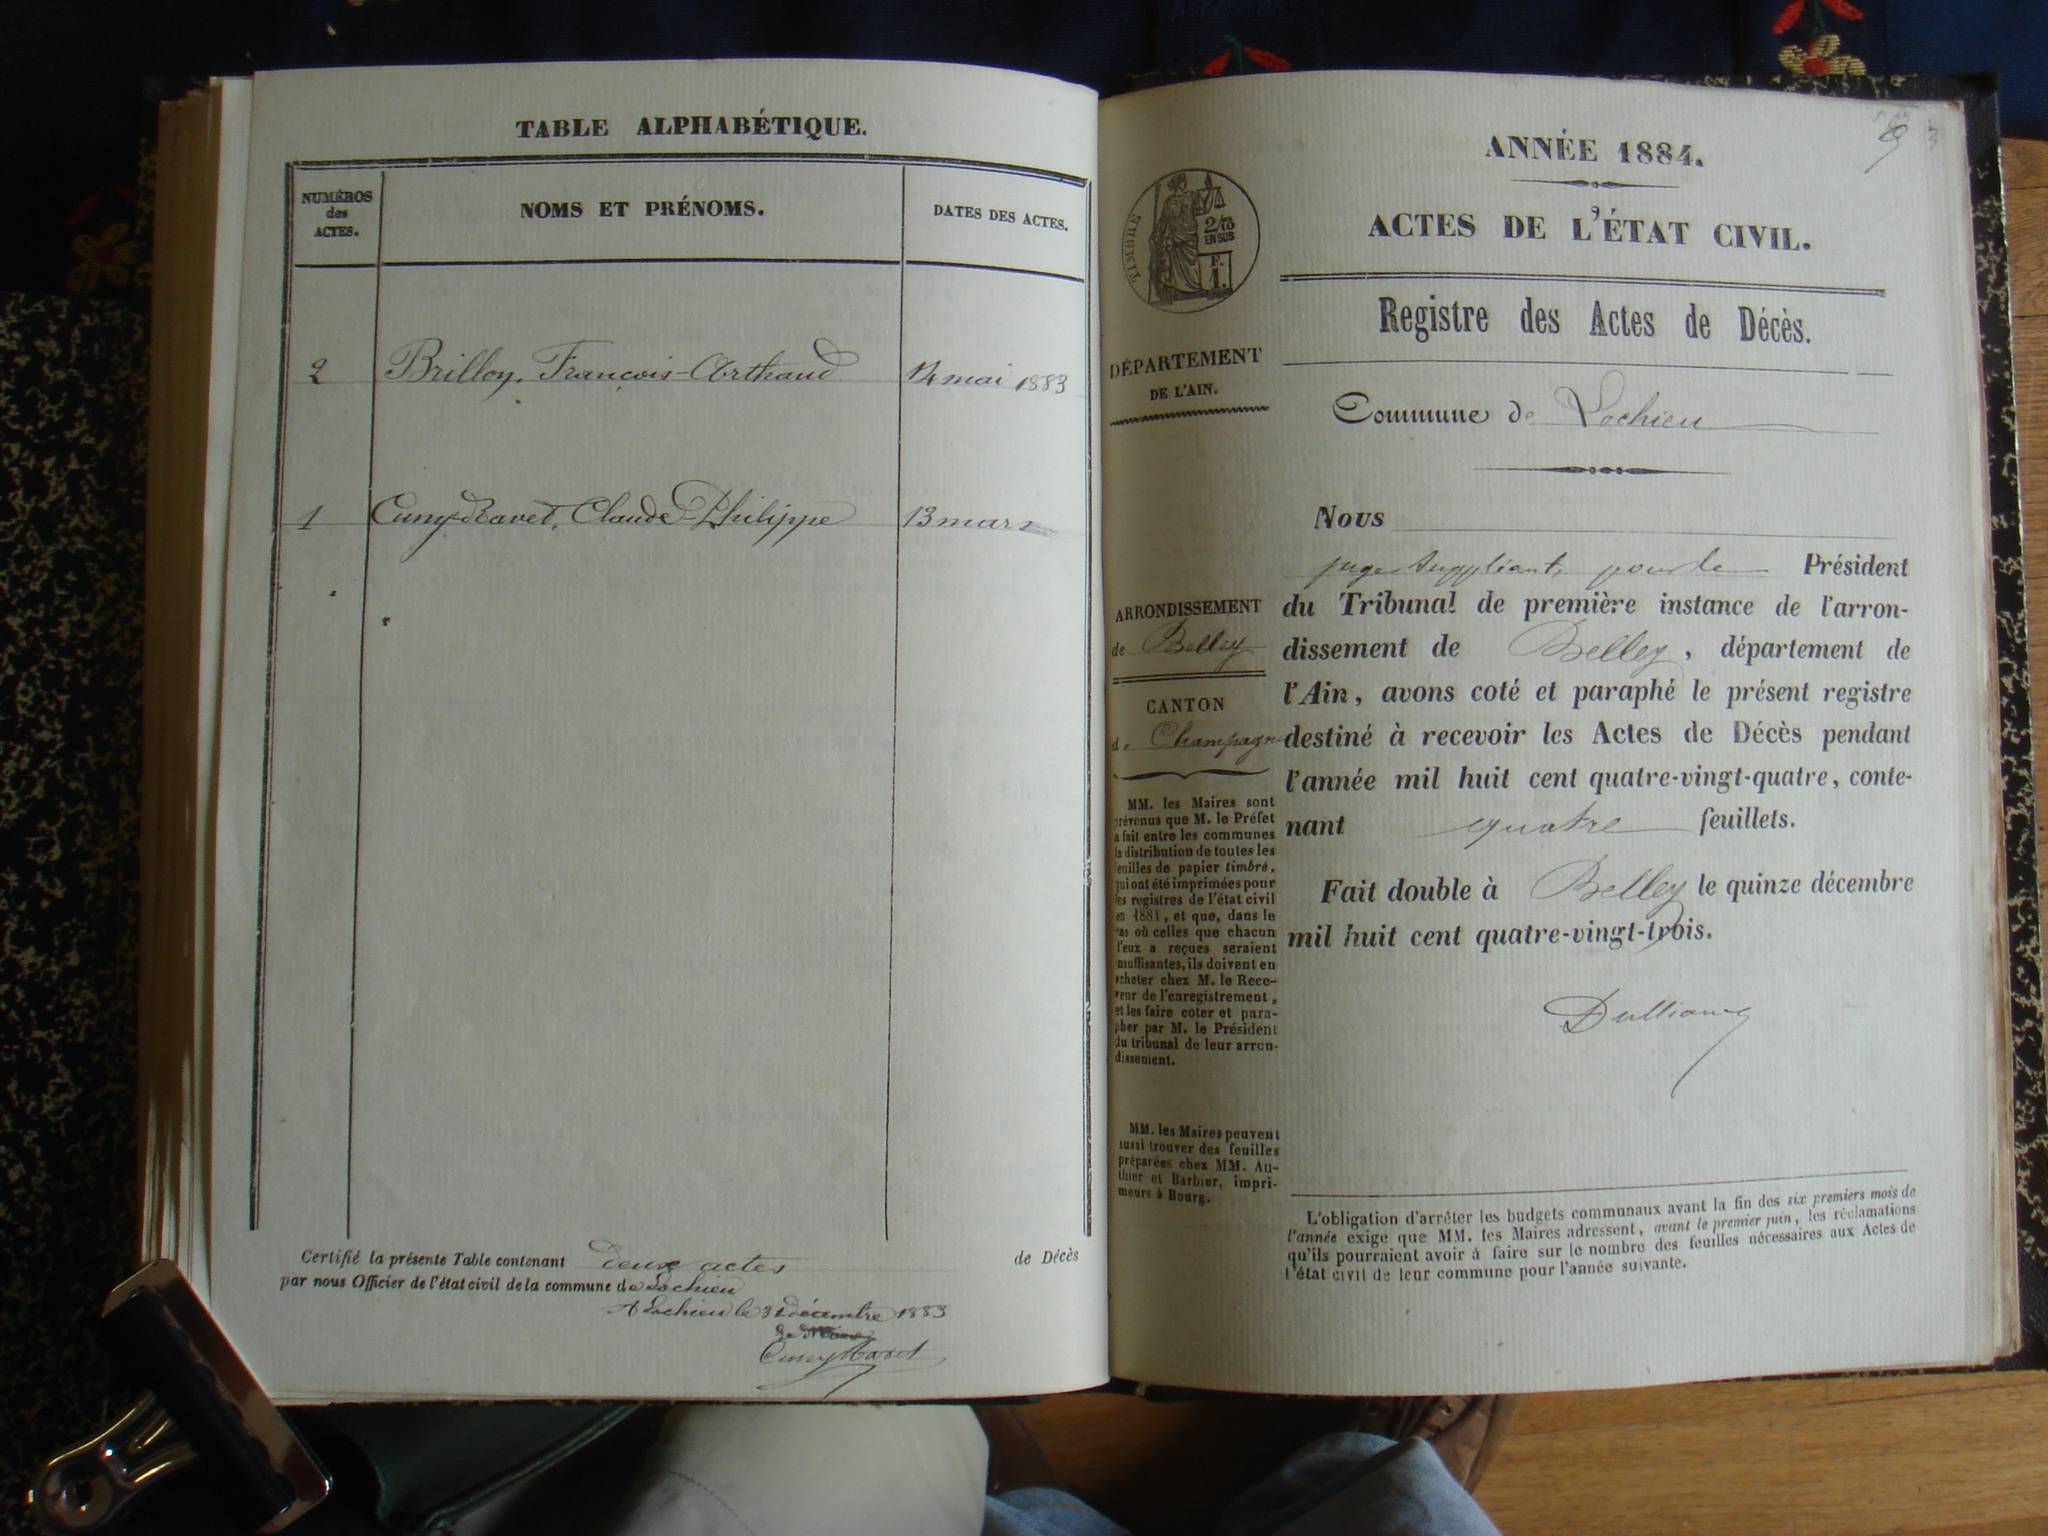 TABLE ALPHABÉTIQUE.
NUMÉROS
des
ACTES.
NOMS ET PRÉNOMS.
DATES DES ACTES.
2 Brilloy, François-Arthaud 14 mai 1883
1 Cuny-Ravet, Claude-Philippe 13 mars
Certifié la présente Table contenant deux actes de Décès
par nous Officier de l'état civil de la commune de Lochieu
A Lochieu le 31 décembre 1883
Cuny Ravet
9
ANNÉE 1884.
ACTES DE L'ÉTAT CIVIL.
TIMBRE
2/10
EN SUS
F.
1.
Registre des Actes de Décès.
DÉPARTEMENT
DE L'AIN.
Commune de Lochieu
Nous
juge suppléant, pour le Président
du Tribunal de première instance de l'arron-
dissement de Belley, département de
l'Ain, avons coté et paraphé le présent registre
destiné à recevoir les Actes de Décès pendant
l'année mil huit cent quatre-vingt-quatre, conte-
nant quatre feuillets.
Fait double à Belley le quinze décembre
mil huit cent quatre-vingt-trois.
ARRONDISSEMENT
de Belley
CANTON
de Champagne
MM. les Maires sont
prévenus que M. le Préfet
a fait entre les communes
la distribution de toutes les
feuilles de papier timbré,
qui ont été imprimées pour
les registres de l'état civil
en 1884, et que, dans le
cas où celles que chacun
d'eux a reçues seraient
insuffisantes, ils doivent en
acheter chez M. le Rece-
veur de l'enregistrement,
et les faire coter et para-
pher par M. le Président
du tribunal de leur arron-
dissement.
MM. les Maires peuvent
aussi trouver des feuilles
préparées chez MM. Au-
thier et Barbier, impri-
meurs à Bourg.
L'obligation d'arrêter les budgets communaux avant la fin des six premiers mois de
l'année exige que MM. les Maires adressent, avant le premier juin, les réclamations
qu'ils pourraient avoir à faire sur le nombre des feuilles nécessaires aux Actes de
l'état civil de leur commune pour l'année suivante.